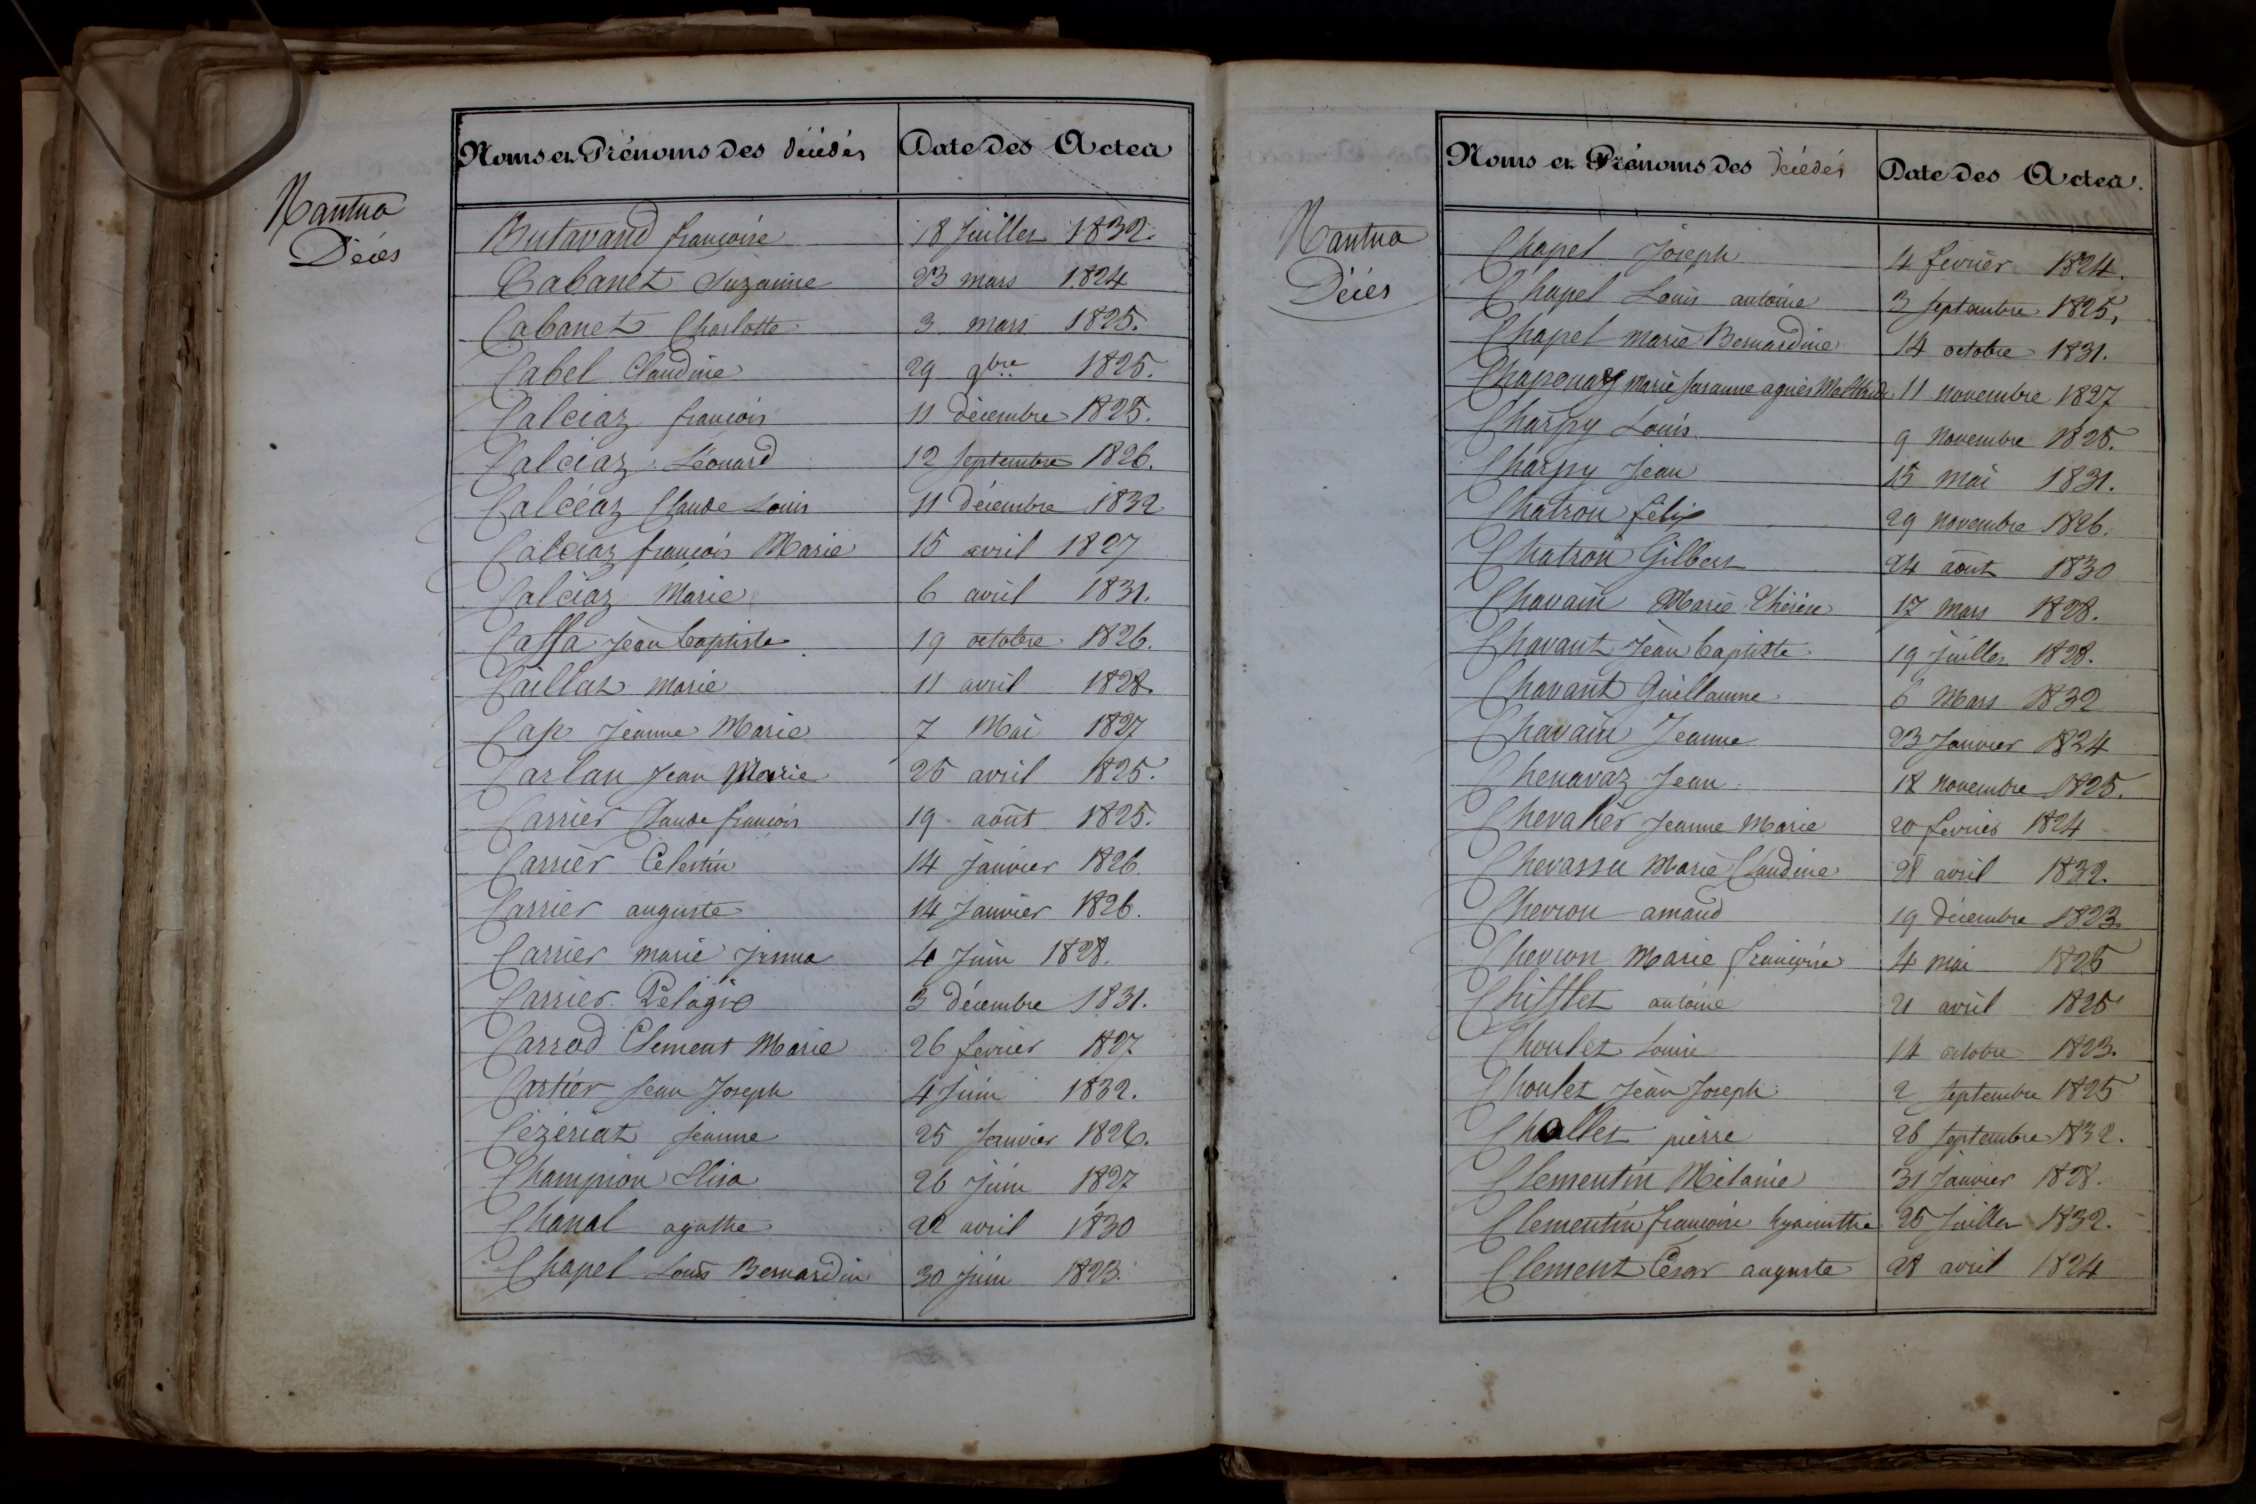 Nantua
Décès
Noms et Prénoms des décédés Date des Actes
Butavand françoise 18 Juillet 1832.
Cabanet Suzanne 23 mars 1824
Cabanet Charlotte 3 mars 1825.
Cabel Claudine 29 9bre 1825.
Calciaz françois 11 décembre 1825.
Calciaz Léonard 12 Septembre 1826.
Calcéaz Claude Louis 11 décembre 1832
Calciaz françois Marie 15 avril 1827
Calciaz Marie 6 avril 1831.
Caffa Jean baptiste 19 octobre 1826.
Caillat marie 11 avril 1828.
Cap Jeanne Marie 7 Mai 1827
Carlan Jean Marie 25 avril 1825.
Carrier Claude françois 19 août 1825.
Carrier Célestin 14 Janvier 1826.
Carrier auguste 14 Janvier 1826.
Carrier marie 4 Juin 1828.
Carrier Pelagie 3 décembre 1831.
Carrod Clement Marie 26 février 1827
Cartier Jean Joseph 4 Juin 1832.
Cézériat Jeanne 25 Janvier 1826.
Champion Elisa 26 Juin 1827
Chanal agathe 22 avril 1830
Chapel Louis Bernardin 30 Juin 1823.
Nantua
Décès
Noms et Prénoms des Décédés Date des Actes.
Chapel Joseph 4 février 1824.
Chapel Louis antoine 3 Septembre 1825.
Chapel marie Bernardine 14 octobre 1831.
Chaponay marie Suzanne agnès 11 novembre 1827
Charpy Louis 9 novembre 1825.
Charpy Jean 15 mai 1831.
Chatron félix 29 novembre 1826.
Chatron Gilbert 24 août 1830
Chavain Marie Thérèse 17 mars 1828.
Chavant Jean baptiste 19 Juillet 1828.
Chavant Guillaume 6 Mars 1832
Chavain Jeanne 23 Janvier 1824
Chenavaz Jean 18 novembre 1825.
Chevalier Jeanne Marie 20 février 1824
Chevassu Marie Claudine 28 avril 1832.
Chevron amand 19 décembre 1823.
Chevron Marie françoise 4 mai 1825
Chifflet antoine 21 avril 1825
Choulet Louise 14 octobre 1823.
Choulet Jean Joseph 2 Septembre 1825
Challet pierre 26 Septembre 1832.
Clementin Mélanie 31 Janvier 1828.
Clementin françoise hyacinthe 25 Juillet 1832.
Clement César auguste 28 avril 1824